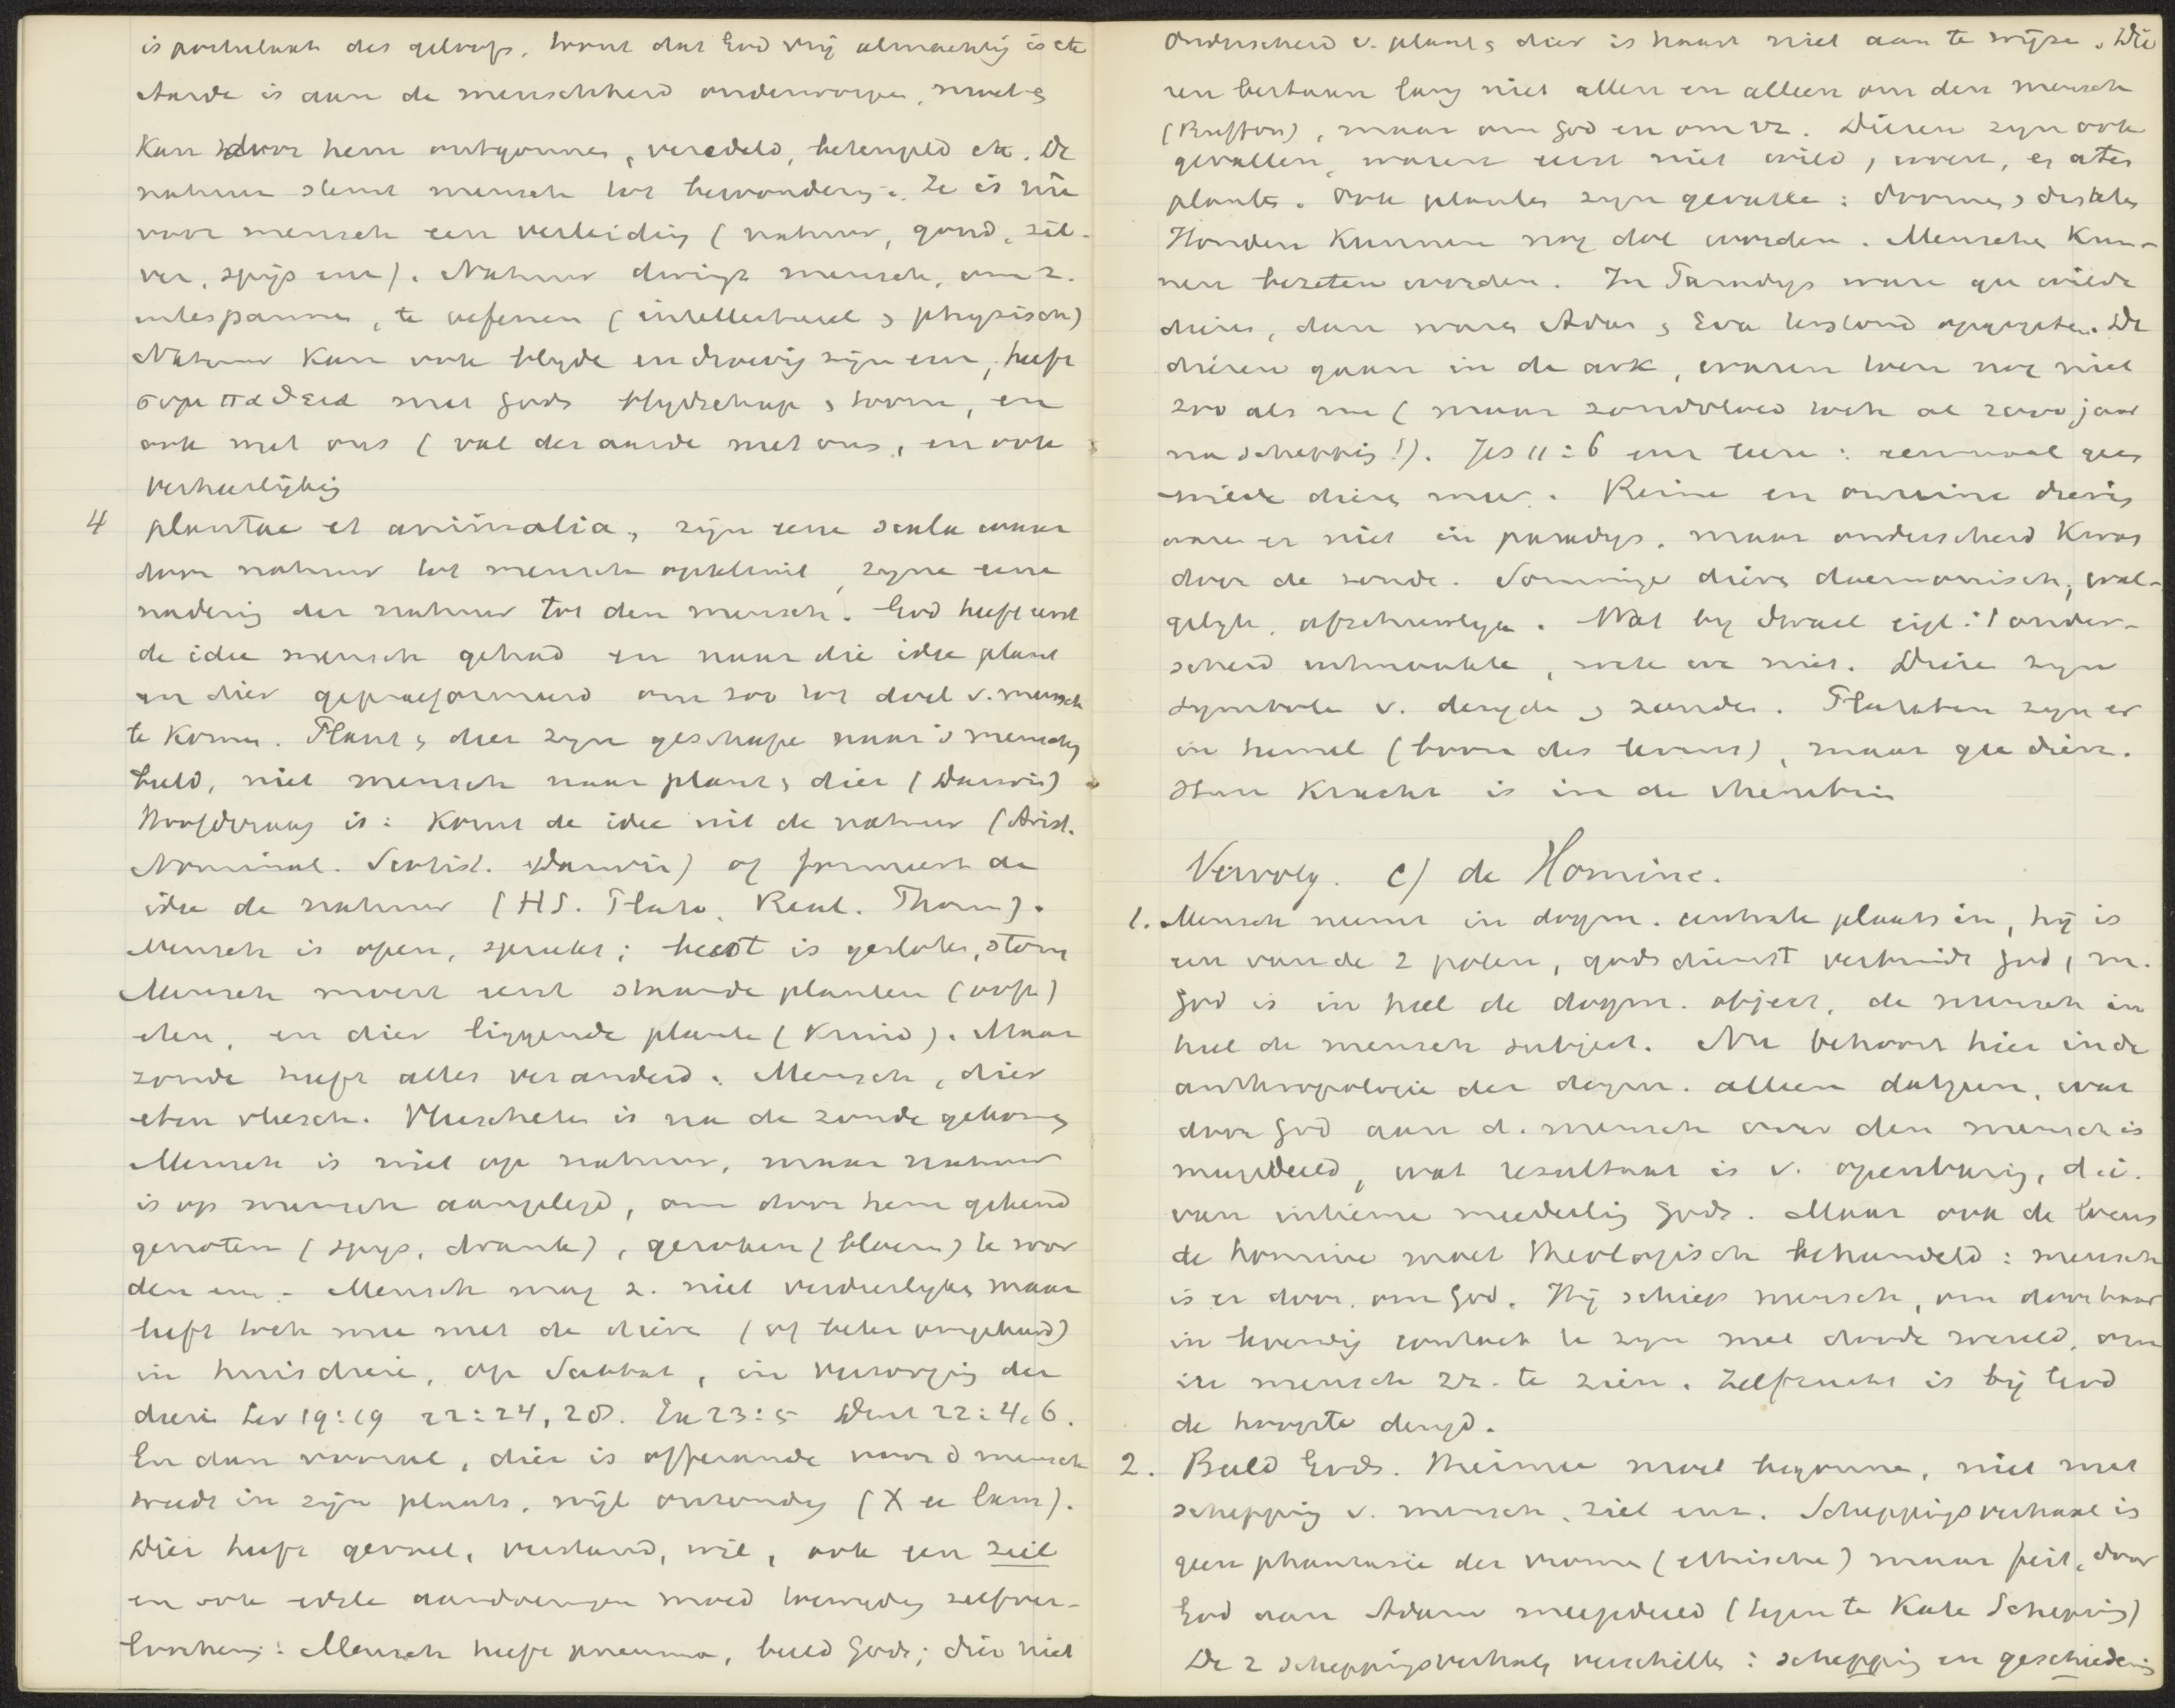 is postulaat des geloofs. want dat God vrij almachtig is etc
Aarde is aan de menschheid onderworpen, moet &
Kan door hem ontgonnen, veredeld, beteugeld etc. De
natuur stemt mensch tot bewondering. Ze is nu
voor mensch een verleiding (natuur, goud, zil-
ver, spijs enz). Natuur dwingt mensch, om z.
intespannen, te oefenen (intellectueel & physisch)
Natuur Kan ook blyde en droevig zijn enz, heeft
συμπαθεια met Gods blydschap & toorn, en
ook met ons (val der aarde met ons, en ook
verheerlyking
4 plantae et animalia, zijn eene scala waar
door natuur tot mensch opklimt, zijne eene
nadering der natuur tot den mensch. God heeft eerst
de idee mensch gehad en naar die idee plant
en dier gepraeformeerd om zoo tot doel v. mensch
te Komen. Plant & dier zijn geschape naar 's menschen
beeld, niet mensch naar plant & dier (Darwin)
Hoofdvraag is: Komt de idee uit de natuur (Arist.
Nominal. Scotist. Darwin) of formeert de
idee de natuur (HS. Plato. Real. Thom).
Mensch is open, spreekt; beest is gesloten, stom
Mensch moest eerst staande planten (ooft)
eten, en dier liggende plante (Kruid). Maar
zonde heeft alles veranderd. Mensch, dier
eten vleesch. Vleescheten is na de zonde gekomen
Mensch is niet op natuur, maar natuur
is op mensch aangelegd, om door hem gekend
genoten (spys, drank), geroken (bloem) te wor
den enz. - Mensch mag z. niet verdierlyken maar
heeft toch mee met de diere (of beter omgekeerd)
in huisdiere, op Sabbat, in verzorging der
diere Lev 19:19 22:24, 28. Ex 23:5 Deut 22:4,6.
En dan vooral, dier is offerande voor d mensch
treedt in zijn plaats, wijl onzondig (X een lam).
Dier heeft gevoel, verstand, wil, ook een ziel
en ook edele aandoeningen moed zelfver-
loochening: Mensch heeft pneuma, beeld Gods; dier niet
Onderscheid v. plant & dier is haast niet aan te wijze. Die
ren bestaan lang niet alleen en alleen om den mensch
(Buffon), maar om God en om zz. Dieren zyn ook
gevallen, waren eerst niet wild, woest, & aten
planten. Ook planten zyn gevalle: doornen & distelen
Honden Kunnen nog dol worden. Menschen Kun-
nen bezeten worden. In Paradys ware gee wilde
dieren, dan waren Adam & Eva terstond opgegeten. De
dieren gaan in de ark, waren toen nog niet
zoo als nu (maar zondvloed toch al 2000 jaar
na schepping!). Jes 11:6 enz leere: eenmaal geen
wilde dieren meer. Reine en onreine dieren
ware er niet in paradys, maar onderscheid Kwam
door de zonde. Sommige dieren daemonisch, wal-
gelyk, afschuwelyk. Wat by Israel eigl. 't onder-
scheid uitmaakte, wete we niet. Diere zyn
symbole v. deugde & zonden. Planten zyn er
in hemel (boom des levens), maar gee diere.
Hun Kracht is in de cherubim
Vervolg. c) de Homine.
1. Mensch neemt in dogm. centrale plaats in, hij is
een van de 2 polen, godsdienst verbindt God, m.
God is in heel de dogm. object, de mensch in
heel de mensch subject. Nu behoort hier in de
anthropologie der dogm. alleen datgeen, wat
door God aan d. mensch over den mensch is
meegedeeld, wat resultaat is v. openbaring, d.i.
van intieme mededeeling Gods. Maar ook de locus
de homine moet theologisch behandeld: mensch
is er door, om God. Hij schiep mensch, om door haar
in levendig contact te zyn met doode wereld, om
in mensch zz. te zien. Zelfzucht is bij God
de hoogste deugd.
2. Beeld Gods. Hiermee moet begonnen, niet met
schepping v. mensch, ziel enz. Scheppingsverhaal is
geen phantasie der vrome (ethische) maar feit, door
God aan Adam meegedeeld (tegen te Kate Schepping)
De 2 scheppingsverhalen verschille: schepping en geschiedenis